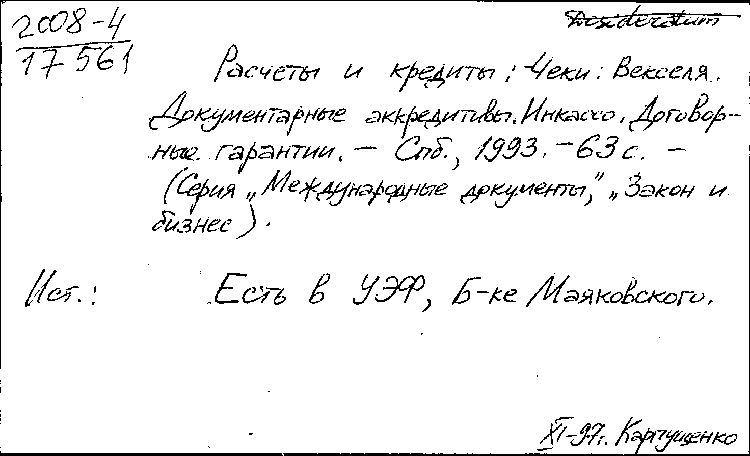 2008-4
17 561
Desideratum
Расчеты и кредиты: Чеки: Векселя.
Документарные аккредитивы. Инкассо. Договор-
ные гарантии. – Спб., 1993. – 63 с. –
(Серия „Международные документы", „Закон и
бизнес).
Ист.: Есть в УЭФ, Б-ке Маяковского.
XI-97г. Карпущенко